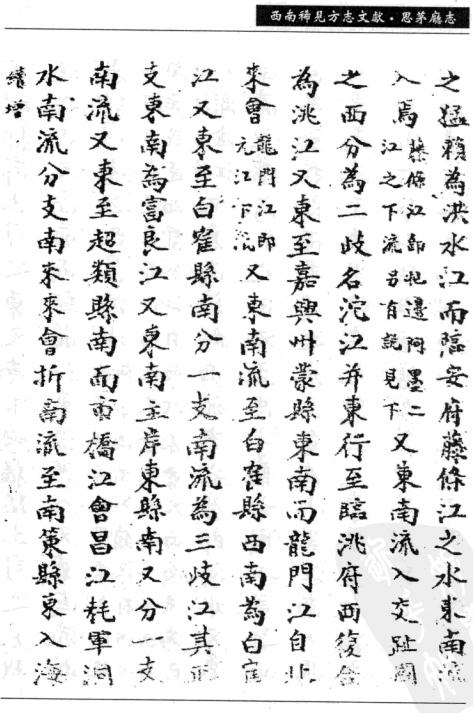 西南稀見方志文獻·思茅廳志
之猛賴為洪水江而臨安府藤條江之水東南流
入焉藤條江即把邊阿墨二江之下流另有說見下又東南流入交趾國
之西分為二歧名沱江并東行至臨洮府西復合
為洮江又東至嘉興州蒙縣東南而龍門江自北
來會龍門江即元江下流又東南流至白崔縣西南為白崔
江又東至白崔縣南分一支南流為三歧江其正
支東南為富良江又東南至岸東縣南又分一支
南流又東至超類縣南而市橋江會昌江耗軍洞
水南流分支南來來會折南流至南策縣東入海
續增